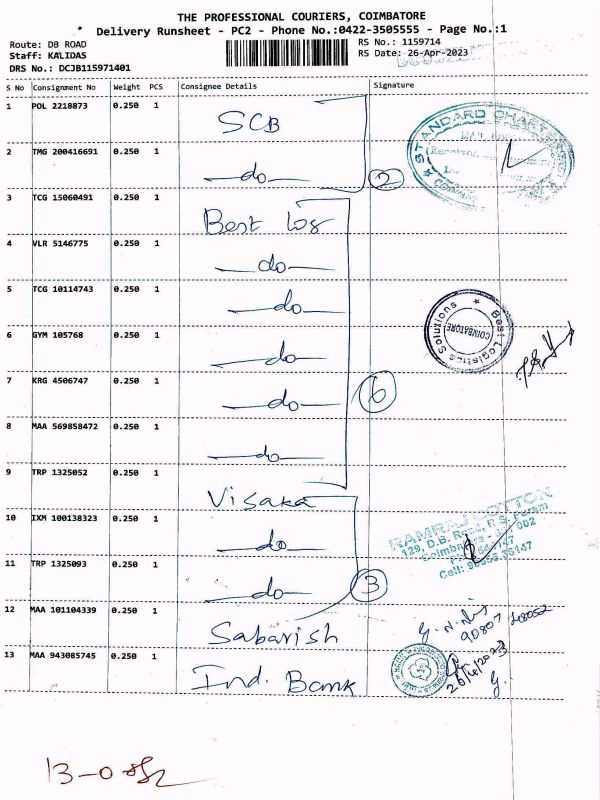 THE PROFESSIONAL COURIERS, COIMBATORE
Delivery Runsheet - PC2 - Phone No.:0422-3505555 - Page No.:1
Route: DB ROAD
Staff: KALIDAS
DRS No.: DCJB115971401
RS No.: 1159714
RS Date: 26-Apr-2023
S No Consignment No Weight PCS Consignee Details Signature
1 POL 2218873 0.250 1 SCB
2 TMG 200416691 0.250 1 do
2
STANDARD CHARTER
3 TCG 15060491 0.250 1 Best log
4 VLR 5146775 0.250 1 do
5 TCG 10114743 0.250 1 do
6 GYM 105768 0.250 1 do
7 KRG 4506747 0.250 1 do
8 MAA 569858472 0.250 1 do
6
Best Logistics Solutions
COIMBATORE
9 TRP 1325052 0.250 1 Visaka
10 IXM 100138323 0.250 1 do
11 TRP 1325093 0.250 1 do
3
RAMRAJ COTTON
129, D.B. Road, R.S. Puram
Coimbatore 002
Cell:
12 MAA 101104339 0.250 1 Sabarish
13 MAA 943085745 0.250 1 Ind. Bank
90807
26/4/2023